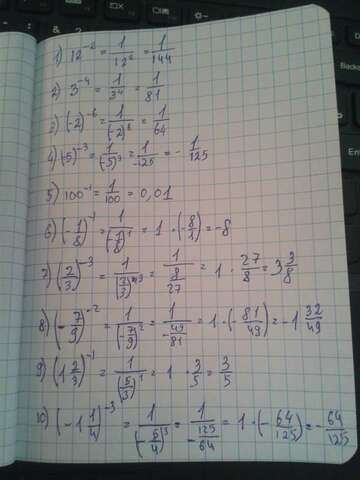 1) 12^-2 = 1/12^2 = 1/144
2) 3^-4 = 1/3^4 = 1/81
3) (-2)^-6 = 1/(-2)^6 = 1/64
4) (-5)^-3 = 1/(-5)^3 = 1/-125 = - 1/125
5) 100^-1 = 1/100 = 0,01
6) (-1/8)^-1 = 1/(-1/8)^1 = 1 · (-8/1) = -8
7) (2/3)^-3 = 1/(2/3)^3 = 1/(8/27) = 1 · 27/8 = 3 3/8
8) (-7/9)^-2 = 1/(-7/9)^2 = 1/(-49/81) = 1 · (-81/49) = -1 32/49
9) (1 2/3)^-1 = 1/(5/3)^1 = 1 · 3/5 = 3/5
10) (-1 1/4)^-3 = 1/(-5/4)^3 = 1/(-125/64) = 1 · (-64/125) = -64/125